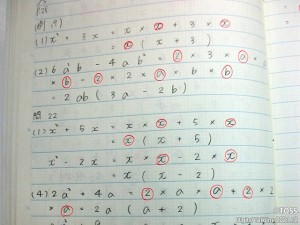 (1) x² + 3x = x × x + 3 × x
= x ( x + 3 )
(2) 6a²b - 4ab² = 2 × 3 × a × a
× b - 2 × 2 × a × b × b
= 2ab ( 3a - 2b )
問 22
(1) x² + 5x = x × x + 5 × x
= x ( x + 5 )
x² - 2x = x × x - 2 × x
= x ( x - 2 )
(4) 2a² + 4a = 2 × a × a + 2 × 2
× a = 2a ( a + 2 )
TOSS